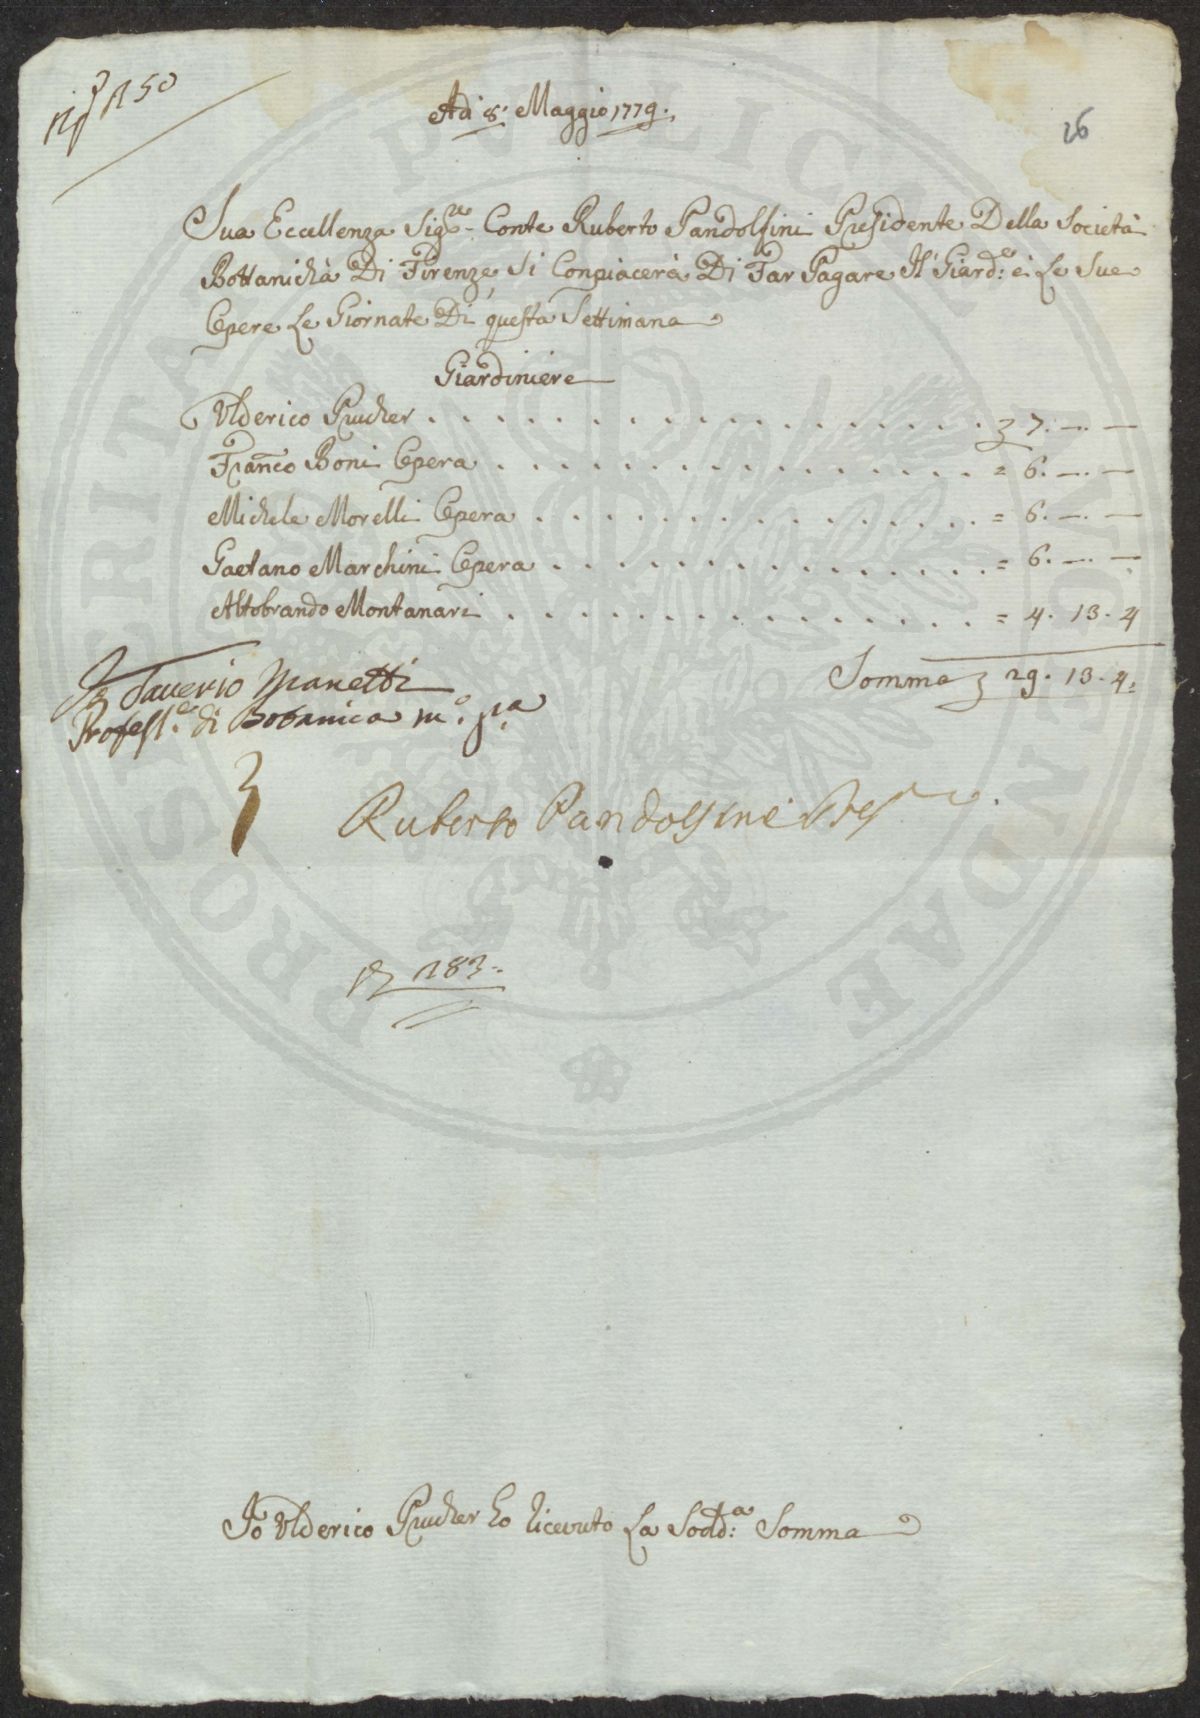 150
Adi 8. Maggio 1779.
26
Sua Eccellenza Sig.re Conte Ruberto Pandolfini Presidente Della Società
Bottanichà Di Firenze, Si Conpiacerà Di Far Pagare Il Giard:e ei Le Sue
Opere Le Giornate Di questa Settimana
Giardiniere
Ulderico Prucher . . . . . . . . . . . . . . . . . . 7. —. —
Franco Boni Opera . . . . . . . . . . . . . . . . = 6. —. —
Michele Morelli Opera . . . . . . . . . . . . . . = 6. —. —
Gaetano Marchini Opera . . . . . . . . . . . . . = 6. —. —
Altobrando Montanari . . . . . . . . . . . . . . = 4. 13. 4
Somma 29. 13. 4.
Saverio Manetti
Profess.e di Botanica m.o p.a
Ruberto Pandolfini Pres
283
Io Ulderico Prucher ho ricevuto La Sodd:a Somma
PROSPERITATI PUBLICAE AUGENDAE